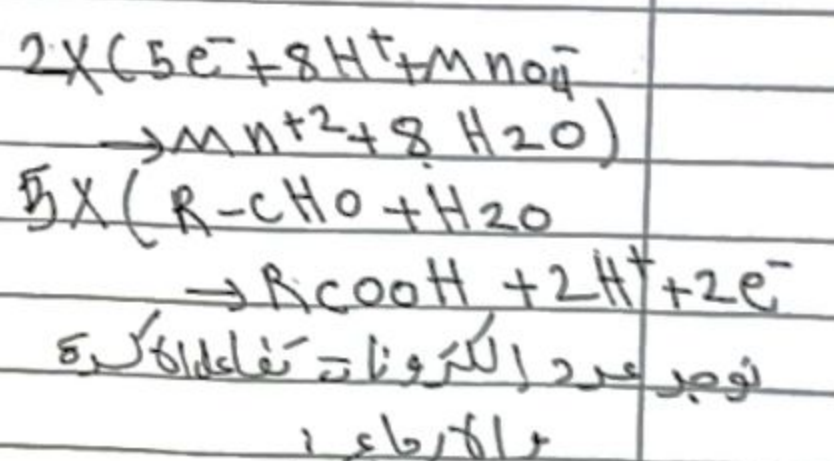 2X(5e⁻+8H⁺+MnO₄⁻
→Mn⁺²+8H2O)
5X(R-CHO+H2O
→RCOOH+2H⁺+2e⁻
نوجد عدد إلكترونات تفاعل الأكسدة
والإرجاع: